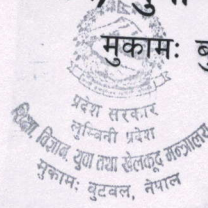 मुकामः बु
प्रदेश सरकार
लुम्बिनी प्रदेश
शिक्षा, विज्ञान, युवा तथा खेलकूद मन्त्रालय
मुकामः बुटवल, नेपाल